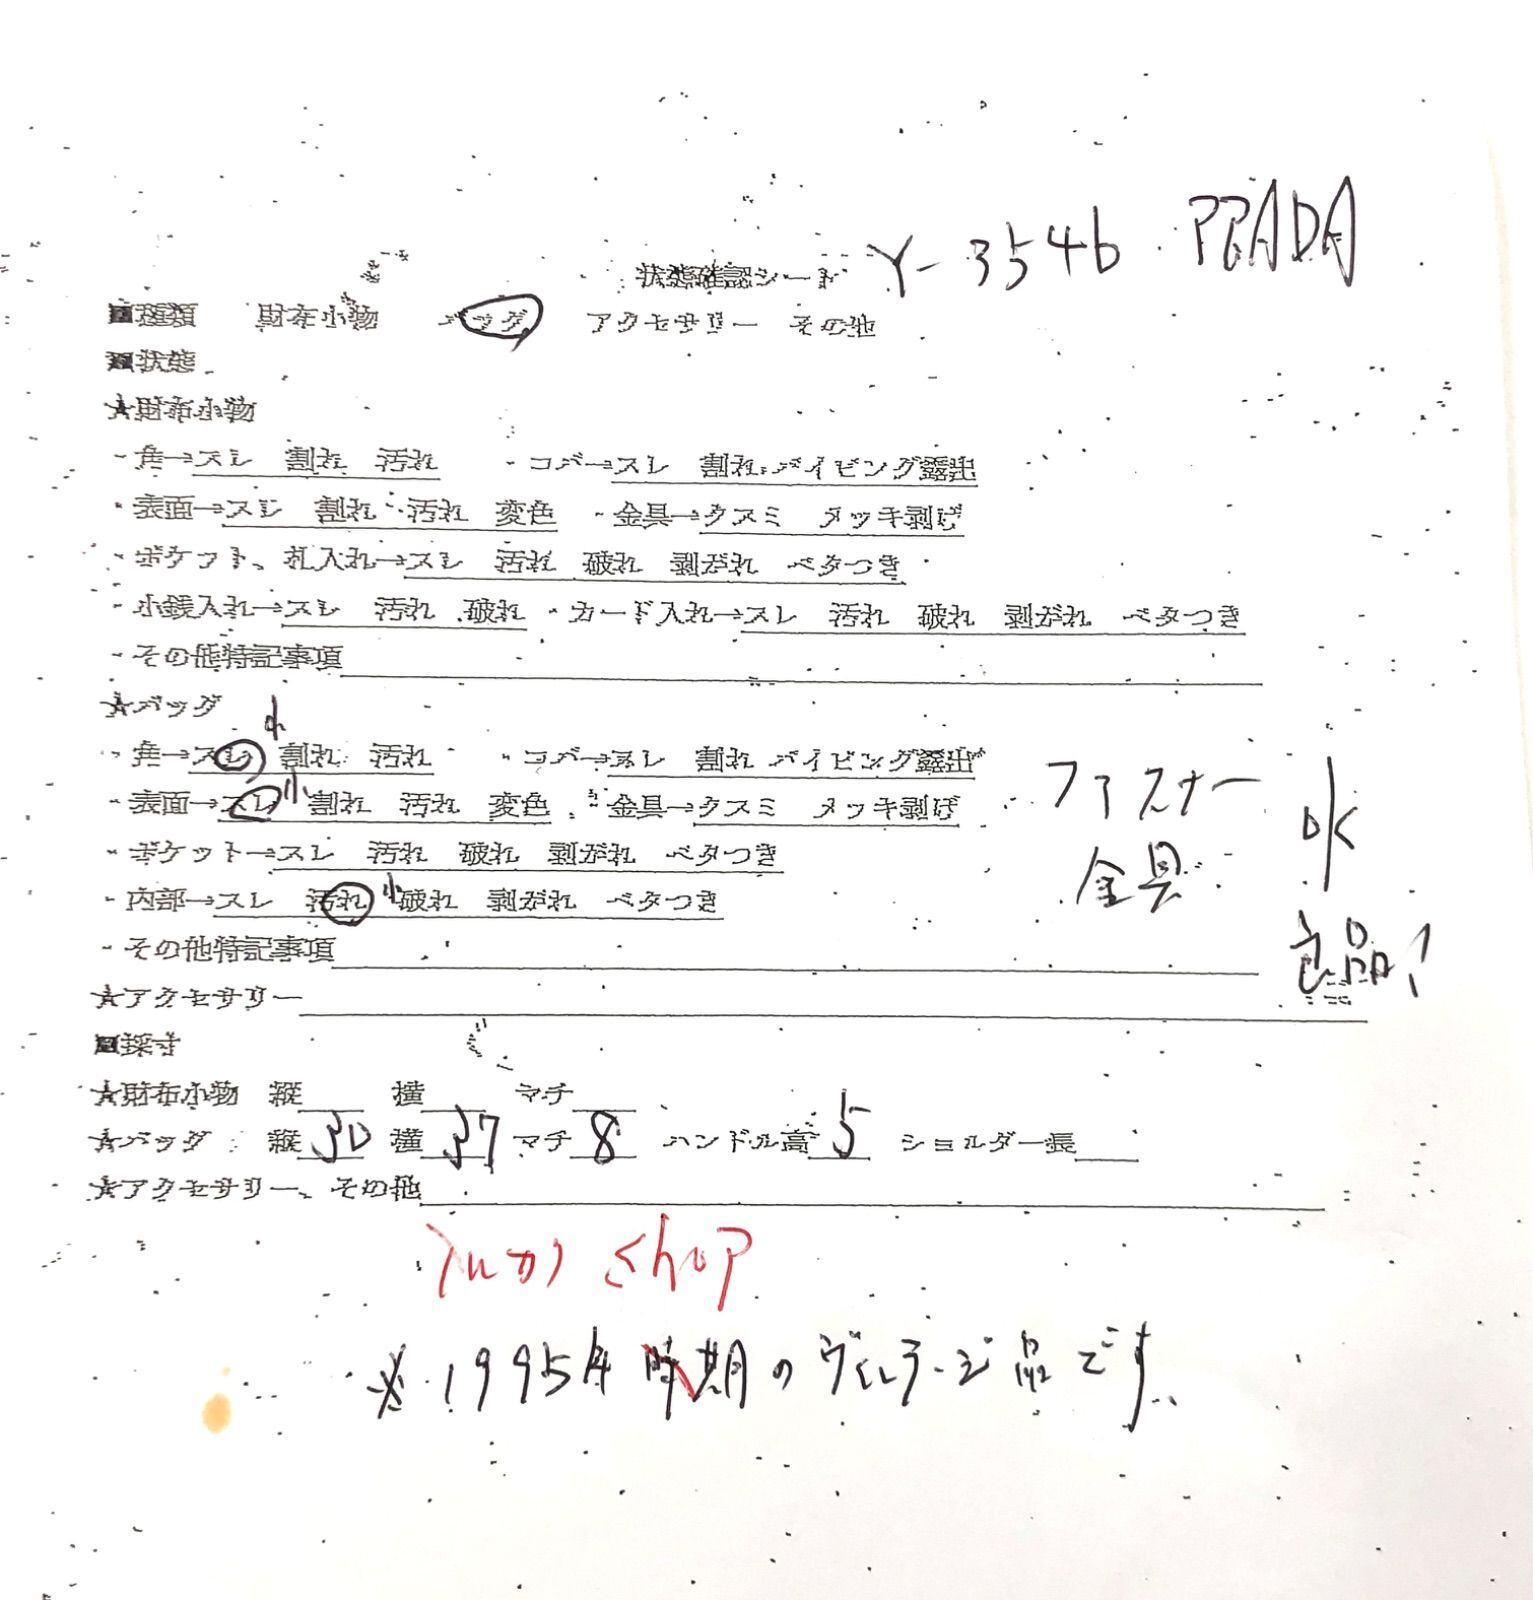 Y-3546 PRADA
状態確認シート
■種類 財布小物 バッグ アクセサリー その他
■状態
★財布小物
・角→スレ 割れ 汚れ ・コバ→スレ 割れ パイピング露出
・表面→スレ 割れ 汚れ 変色 ・金具→クスミ メッキ剥げ
・ポケット、札入れ→スレ 汚れ 破れ 剥がれ ベタつき
・小銭入れ→スレ 汚れ 破れ ・カード入れ→スレ 汚れ 破れ 剥がれ ベタつき
・その他特記事項
★バッグ
小
・角→スレ 割れ 汚れ ・コバ→スレ 割れ パイピング露出
・表面→スレ 小 割れ 汚れ 変色 ・金具→クスミ メッキ剥げ
ファスナー
金具
OK
・ポケット→スレ 汚れ 破れ 剥がれ ベタつき
・内部→スレ 汚れ 小 破れ 剥がれ ベタつき
良品!
・その他特記事項
★アクセサリー
■採寸
★財布小物 縦 横 マチ
★バッグ 縦 30 横 37 マチ 8 ハンドル高 5 ショルダー長
★アクセサリー、その他
shop
※1995年時期のヴィンテージ品です